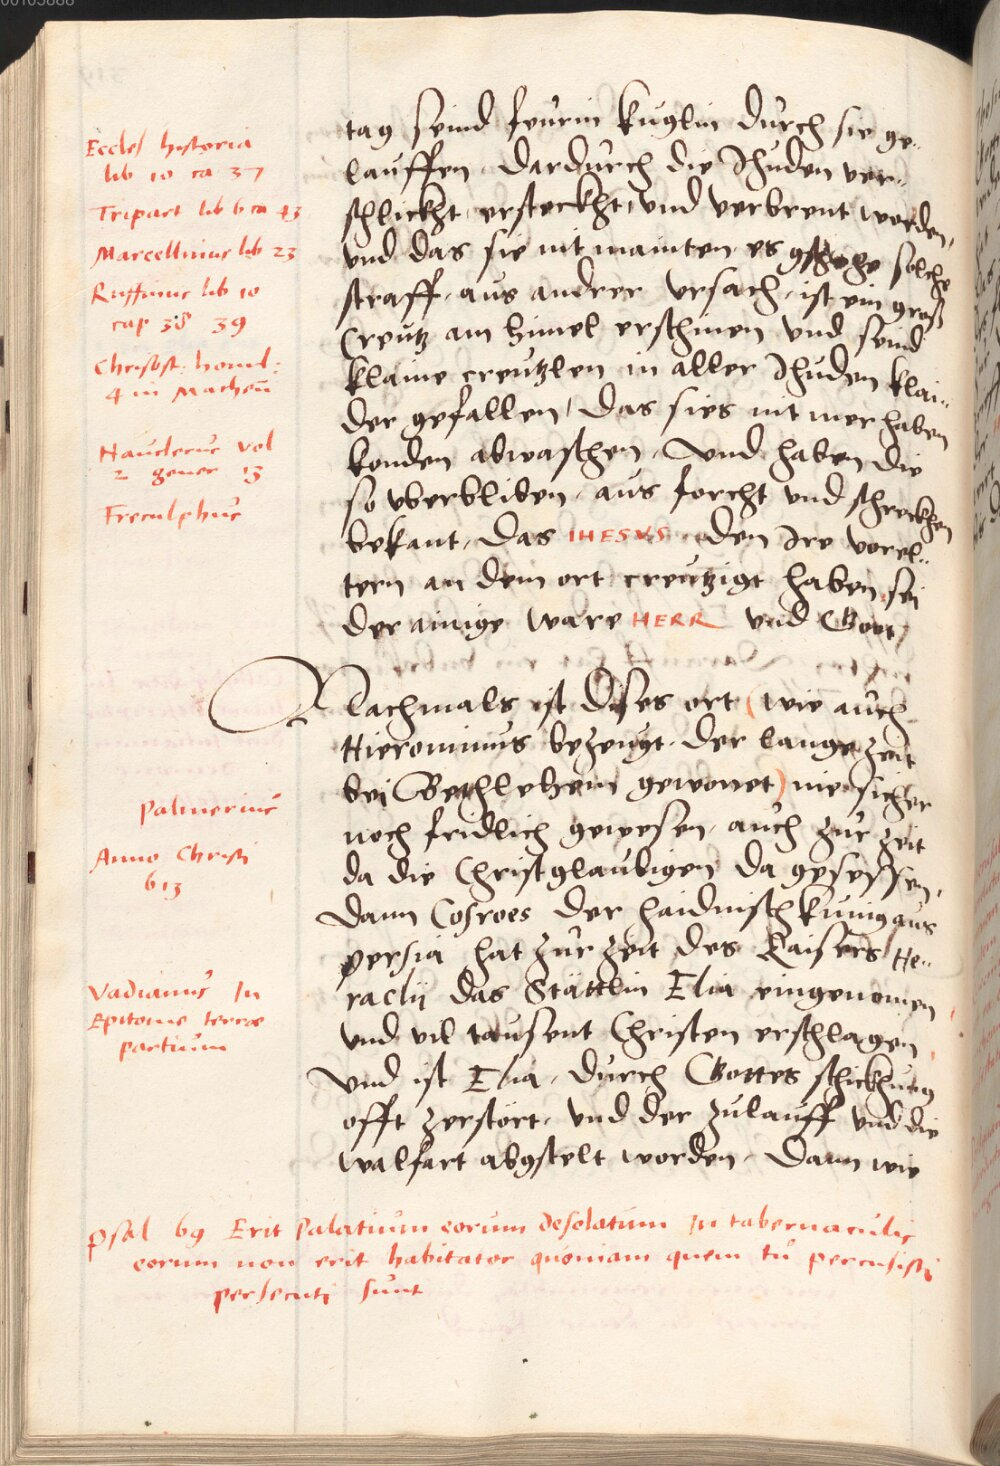 00103888
tag seind feurin kuglin durch sie ge-
lauffen, dardurch die Jhuden ver-
schlickht, ersteckht, und verbrent worden,
und das sie nit mainten es gschehe solche
straff, aus andrer ursach, ist ein groß
Creutz am himel erschinen und seind
klaine creutzlen in aller Jhuden klai-
der gefallen, das sies nit mer haben
konden abwaschen, Und haben die
so uberbliben, aus forcht und schreckhen
bekant, das IHESVS den Ire vorel-
tern an dem ort creutzigt haben, sei
der ainige ware HERR und Gott,
Nachmals ist dises ort (wie auch
Hieronimus bezeugt, der lange zeit
bei Bethlehem gewonet) nie sicher
noch fridlich gewesen, auch zur zeit
da die Christglaubigen da gesessen,
Dann Cosroes der haidnisch kunig aus
persia hat zur zeit des Kaisers He-
raclij das Stättlin Elia eingenomen
und vil tausent Christen erschlagen
Und ist Elia, durch Gottes schickhung
offt zerstört, und der zulauff und die
walfart abgstelt worden, Dann wie
Eccles historia
lib 10 ca 37
Tripart lib 6 ca 43
Marcellinus lib 23
Ruffinus lib 10
cap 38 39
Chrisost: homil:
4 in Matheu
Nauclerus vol
2 gener 13
Freculphus
Palmerius
Anno Christi
613
Vadianus In
Epitome terrae
partium
psal 69 Erit Palatium eorum desolatum In tabernaculis
eorum non erit habitator quoniam quem tu percusisti
persecuti sunt